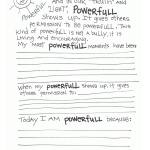 and in our "truth" and
light, POWERFULL
shows up. It gives others
permission to be powerfull. This
kind of powerfull is not a bully, it is
loving and encouraging.
My "most" POWERFULL moments have been
when my POWERFULL shows up it gives
others permission to:
Today I AM POWERFULL because: